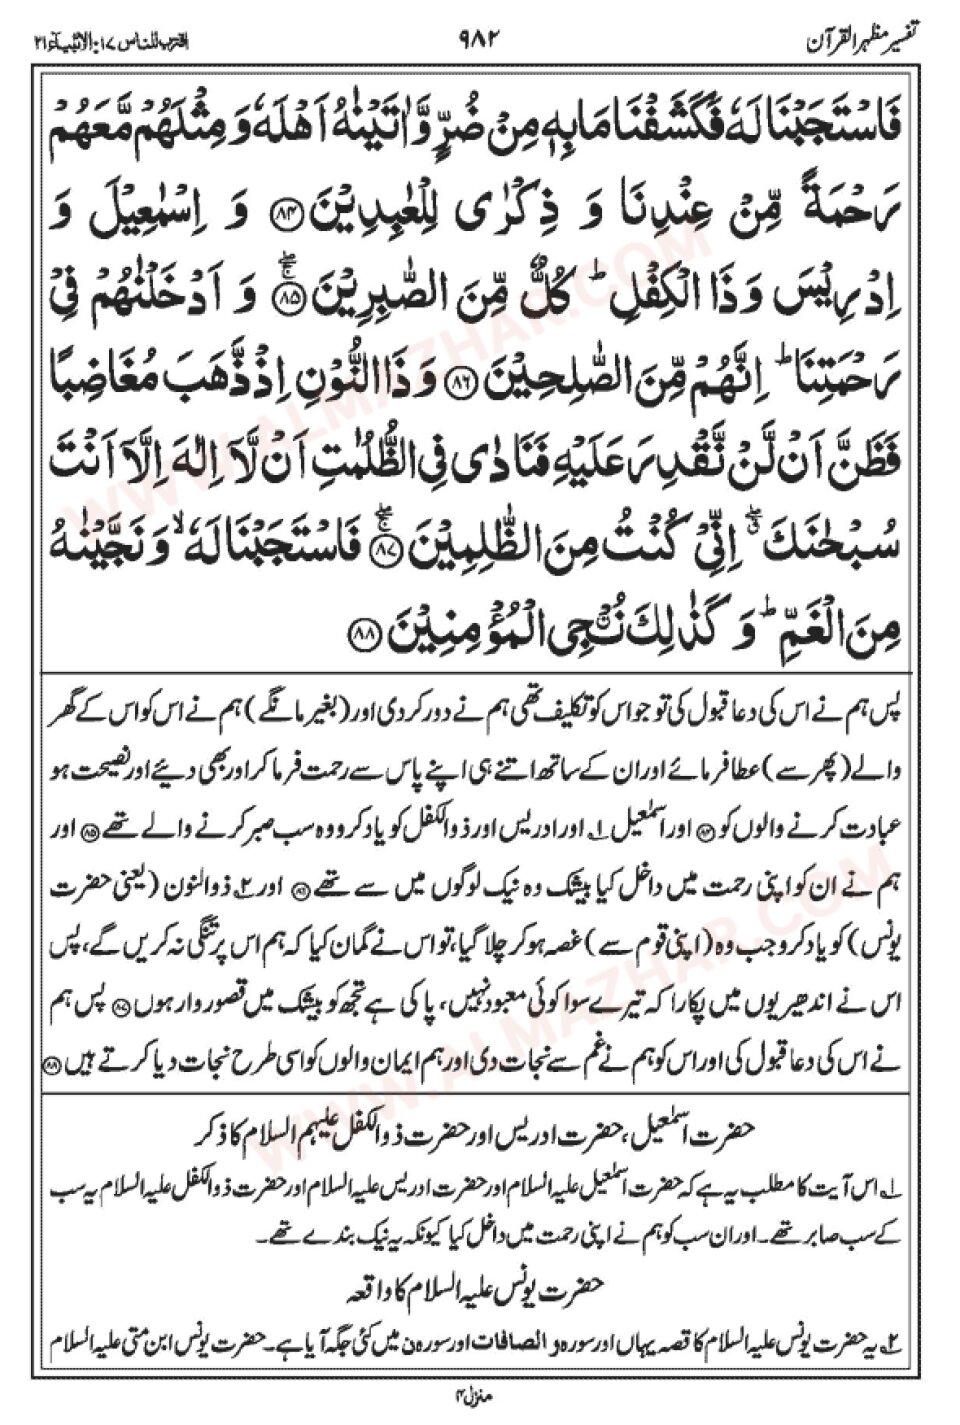 تفسیر مظہر القرآن
۹۸۲
اقترب للناس ۱۷: الانبیآء ۲۱
فَاسْتَجَبْنَا لَهٗ فَكَشَفْنَا مَا بِهٖ مِنْ ضُرٍّ وَّاٰتَيْنٰهُ اَهْلَهٗ وَمِثْلَهُمْ مَّعَهُمْ
رَحْمَةً مِّنْ عِنْدِنَا وَ ذِكْرٰى لِلْعٰبِدِيْنَ ﴿۸۴﴾ وَ اِسْمٰعِيْلَ وَ
اِدْرِيْسَ وَذَا الْكِفْلِ ؕ كُلٌّ مِّنَ الصّٰبِرِيْنَ ۚۖ﴿۸۵﴾ وَ اَدْخَلْنٰهُمْ فِيْ
رَحْمَتِنَا ؕ اِنَّهُمْ مِّنَ الصّٰلِحِيْنَ ﴿۸۶﴾ وَذَا النُّوْنِ اِذْ ذَّهَبَ مُغَاضِبًا
فَظَنَّ اَنْ لَّنْ نَّقْدِرَ عَلَيْهِ فَنَادٰى فِي الظُّلُمٰتِ اَنْ لَّاۤ اِلٰهَ اِلَّاۤ اَنْتَ
سُبْحٰنَكَ ۖۗ اِنِّيْ كُنْتُ مِنَ الظّٰلِمِيْنَ ۚۖ﴿۸۷﴾ فَاسْتَجَبْنَا لَهٗ ۙ وَنَجَّيْنٰهُ
مِنَ الْغَمِّ ؕ وَ كَذٰلِكَ نُـْۨجِي الْمُؤْمِنِيْنَ ﴿۸۸﴾
پس ہم نے اس کی دعا قبول کی تو جو اس کو تکلیف تھی ہم نے دور کر دی اور (بغیر مانگے) ہم نے اس کو اس کے گھر
والے (پھر سے) عطا فرمائے اور ان کے ساتھ اتنے ہی اپنے پاس سے رحمت فرما کر اور بھی دیئے اور نصیحت ہو
عبادت کرنے والوں کو ﴿۸۴﴾ اور اسمٰعیل ۱؎ اور ادریس اور ذوالکفل کو یاد کرو وہ سب صبر کرنے والے تھے ﴿۸۵﴾ اور
ہم نے ان کو اپنی رحمت میں داخل کیا بیشک وہ نیک لوگوں میں سے تھے ﴿۸۶﴾ اور ۲؎ ذوالنون (یعنی حضرت
یونس) کو یاد کرو جب وہ (اپنی قوم سے) غصہ ہو کر چلا گیا، تو اس نے گمان کیا کہ ہم اس پر تنگی نہ کریں گے، پس
اس نے اندھیریوں میں پکارا کہ تیرے سوا کوئی معبود نہیں، پاکی ہے تجھ کو بیشک میں قصوروار ہوں ﴿۸۷﴾ پس ہم
نے اس کی دعا قبول کی اور اس کو ہم نے غم سے نجات دی اور ہم ایمان والوں کو اسی طرح نجات دیا کرتے ہیں ﴿۸۸﴾
حضرت اسمٰعیل، حضرت ادریس اور حضرت ذوالکفل علیہم السلام کا ذکر
۱؎ اس آیت کا مطلب یہ ہے کہ حضرت اسمٰعیل علیہ السلام اور حضرت ادریس علیہ السلام اور حضرت ذوالکفل علیہ السلام یہ سب
کے سب صابر تھے۔ اور ان سب کو ہم نے اپنی رحمت میں داخل کیا کیونکہ یہ نیک بندے تھے۔
حضرت یونس علیہ السلام کا واقعہ
۲؎ یہ حضرت یونس علیہ السلام کا قصہ یہاں اور سورہ والصافات اور سورہ ن میں کئی جگہ آیا ہے۔ حضرت یونس ابن متی علیہ السلام
منزل ۴
WWW.ALMAZHAR.COM
WWW.ALMAZHAR.COM